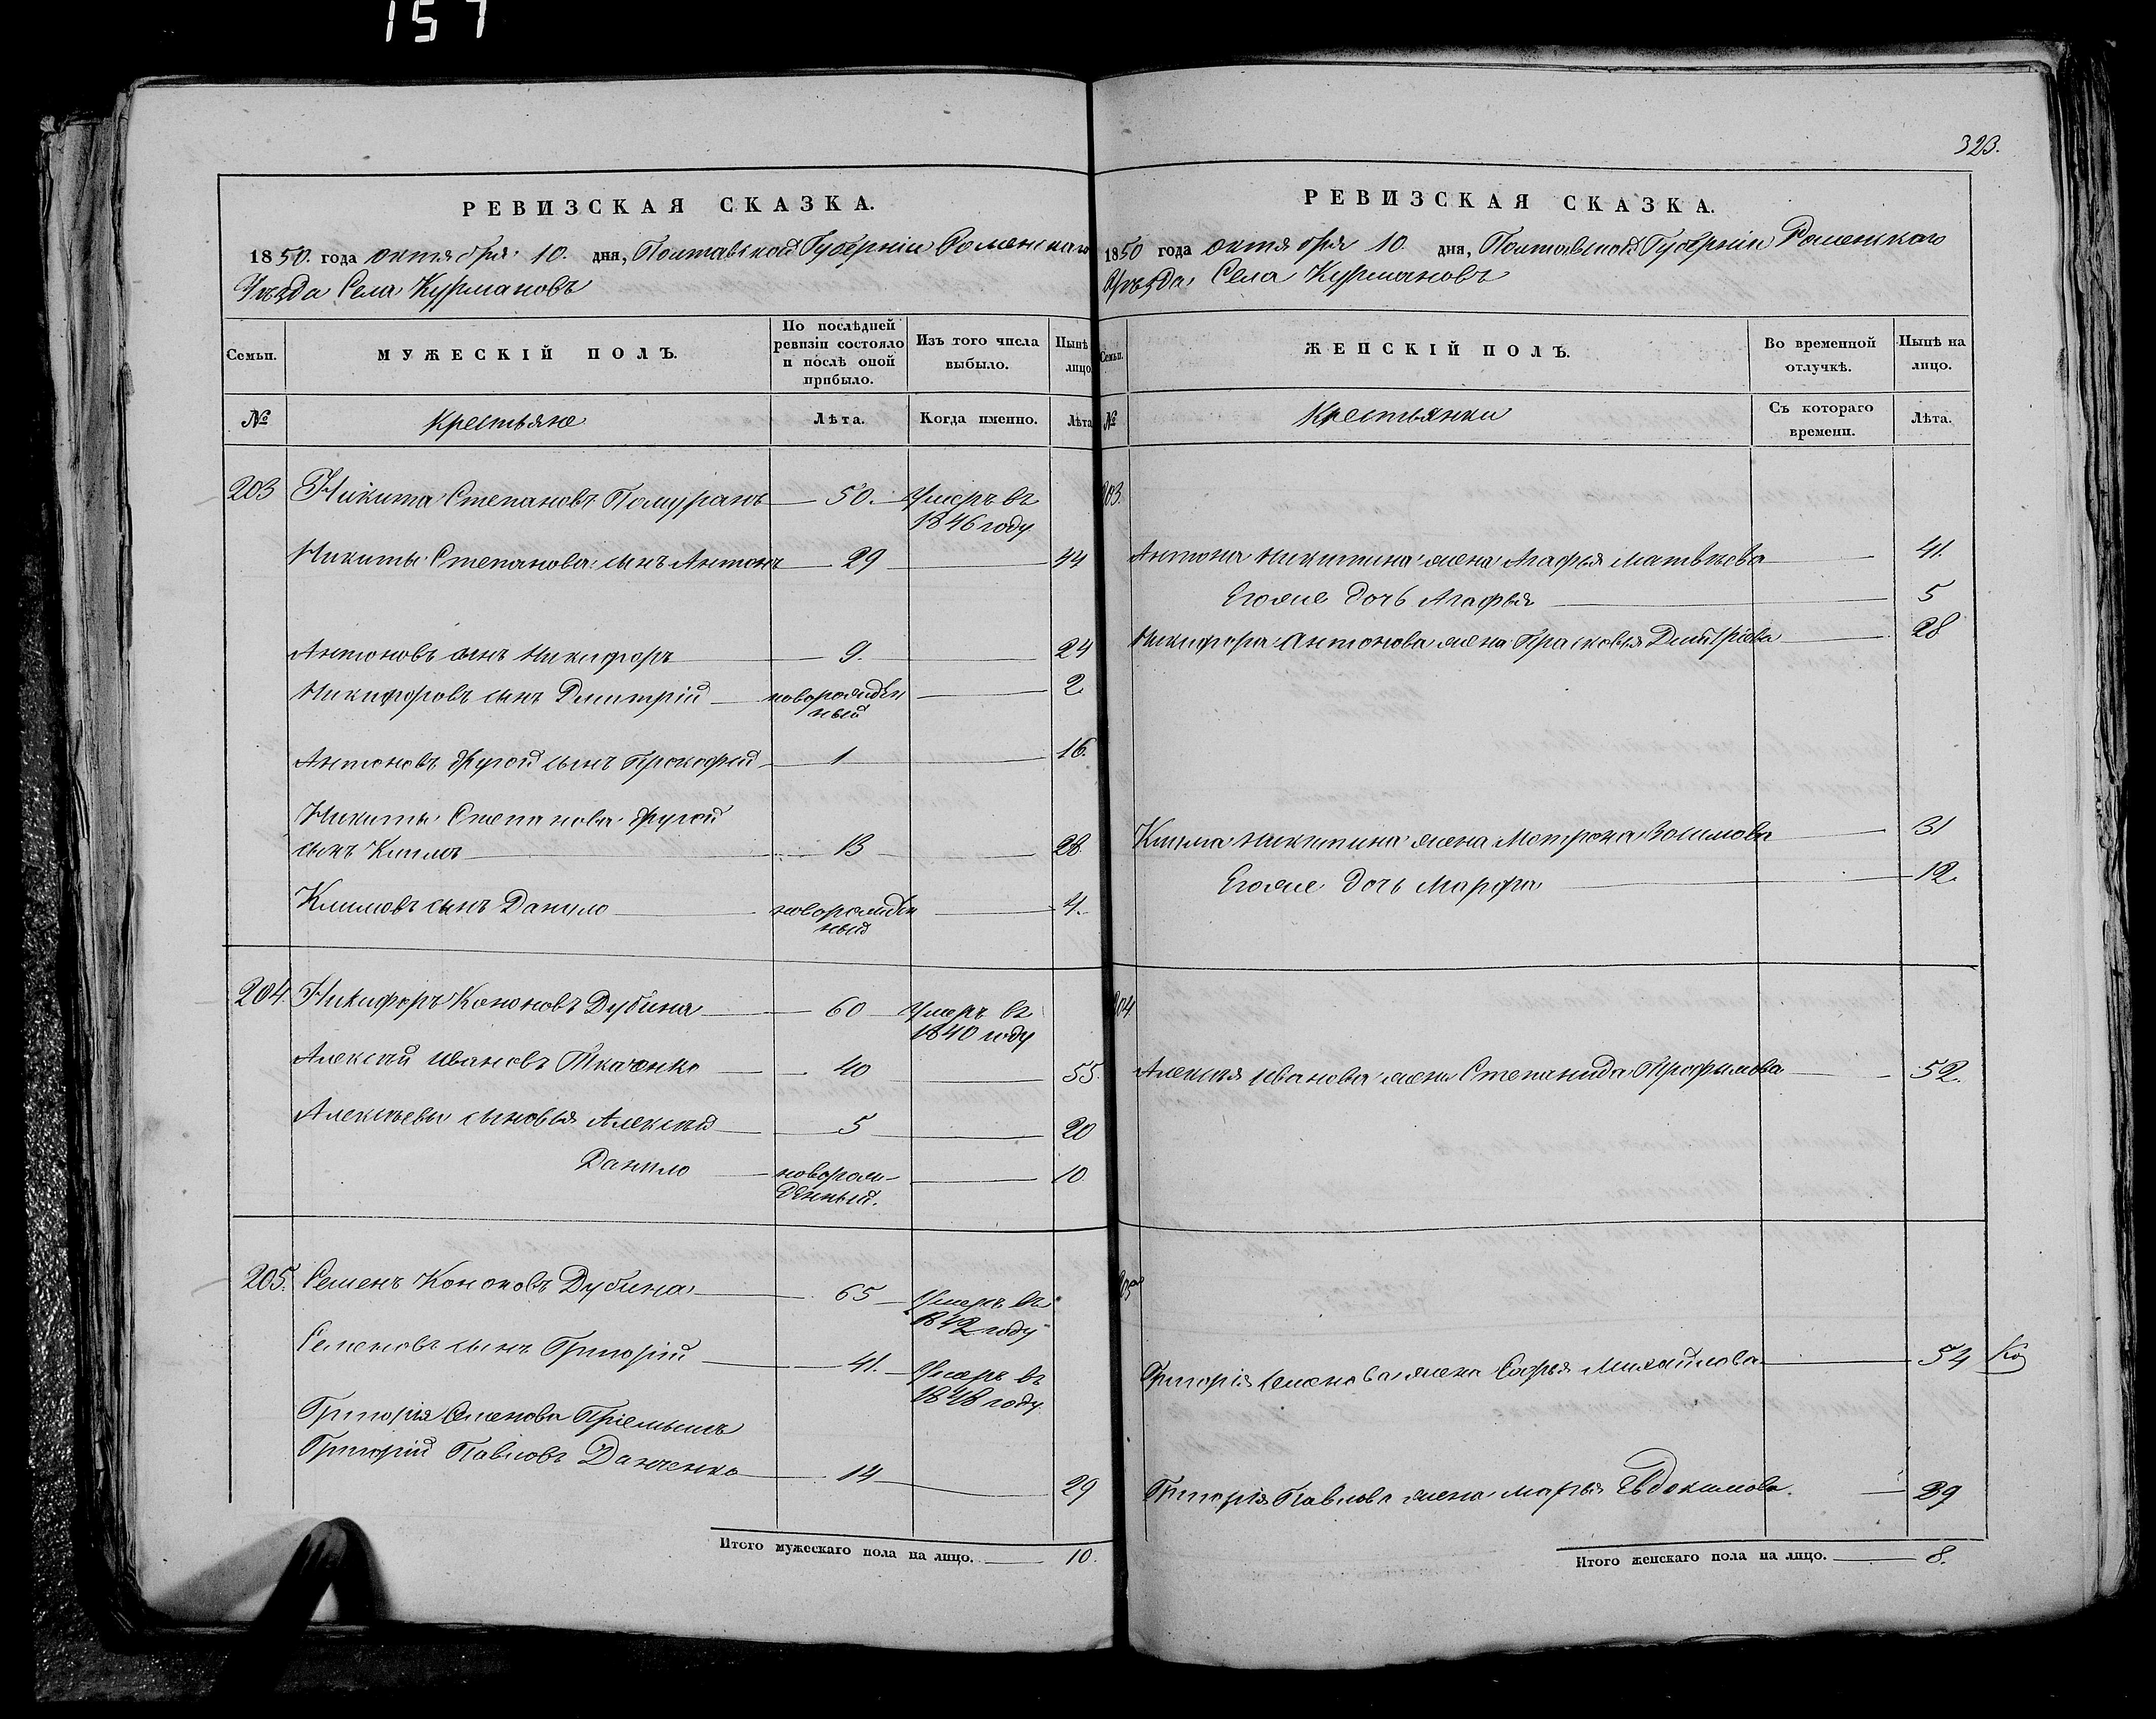 157
323.
РЕВИЗСКАЯ СКАЗКА.
1850. года октября 10. дня, Полтавской Губерніи Роменскаго
Уѣзда Села Курмановъ
Семьи.
МУЖЕСКІЙ ПОЛЪ.
По послѣдней ревизіи состояло и послѣ оной прибыло.
Изъ того числа выбыло.
Нынѣ лицо
№
Крестьяне
Лѣта.
Когда именно.
Лѣта
203 Никита Степановъ 50. Умеръ въ
1846 году
Никиты Степанова сынъ Антонъ 29 44
Антоновъ сынъ Никифоръ 9. 24
Никифоровъ сынъ Дмитрій новорожден 2
ный
Антоновъ другой сынъ Прокофій 1 16.
Никиты Степанова другой
сынъ Климъ 13 28.
Климовъ сынъ Данило новорожден 4.
ный
204. Никифоръ Кононовъ Дубина 60 Умеръ въ
1840 году
Алексѣй Ивановъ Ткаченко 40 55.
Алексѣевы сыновья Алексѣй 5 20
Данило новорож- 10
денный.
205. Семенъ Кононовъ Дубина 65 Умеръ въ
1842 году
Семеновъ сынъ Григорій 41. Умеръ въ
1848 году
Григорія Семенова Пріемышъ
Григорій Павловъ Данченко 14 29
Итого мужескаго пола на лицо. 10.
РЕВИЗСКАЯ СКАЗКА.
1850 года октября 10. дня, Полтавской Губерніи Роменскаго
Уѣзда Села Курмановъ
Семьи.
ЖЕНСКІЙ ПОЛЪ.
Во временной отлучкѣ.
Нынѣ на лицо.
№
Крестьянки
Съ котораго времени.
Лѣта.
203.
Антона Никитина жена Агафья Матвѣева 41.
Егоже дочь Агафья 5
Никифора Антонова жена Прасковья Дмитріева 28
Клима Никитина жена Матрона 31
Егоже дочь Марфа 12.
204
Алексѣя Иванова жена Степанида Трофимова 52.
205
Григорія Семенова жена Софья Михайлова 54
Григорія Павлова жена Марья Евдокимова. 29
Итого женскаго пола на лицо. 8.